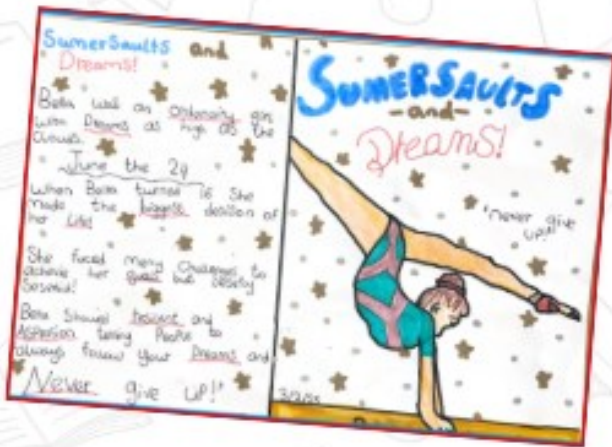 SumerSaults and
Dreams!
Bella was an Ordinary girl
with Dreams as high as the
Clouds.
June the 24
When Bella turned 16 She
made the biggest desision of
her Life!
She faced many Challenges to
achieve her but
Bella Showed and
telling People to
always follow Your Dreams and
Never give up!"
SUMERSAULTS
-and-
Dreams!
"never give
up!"